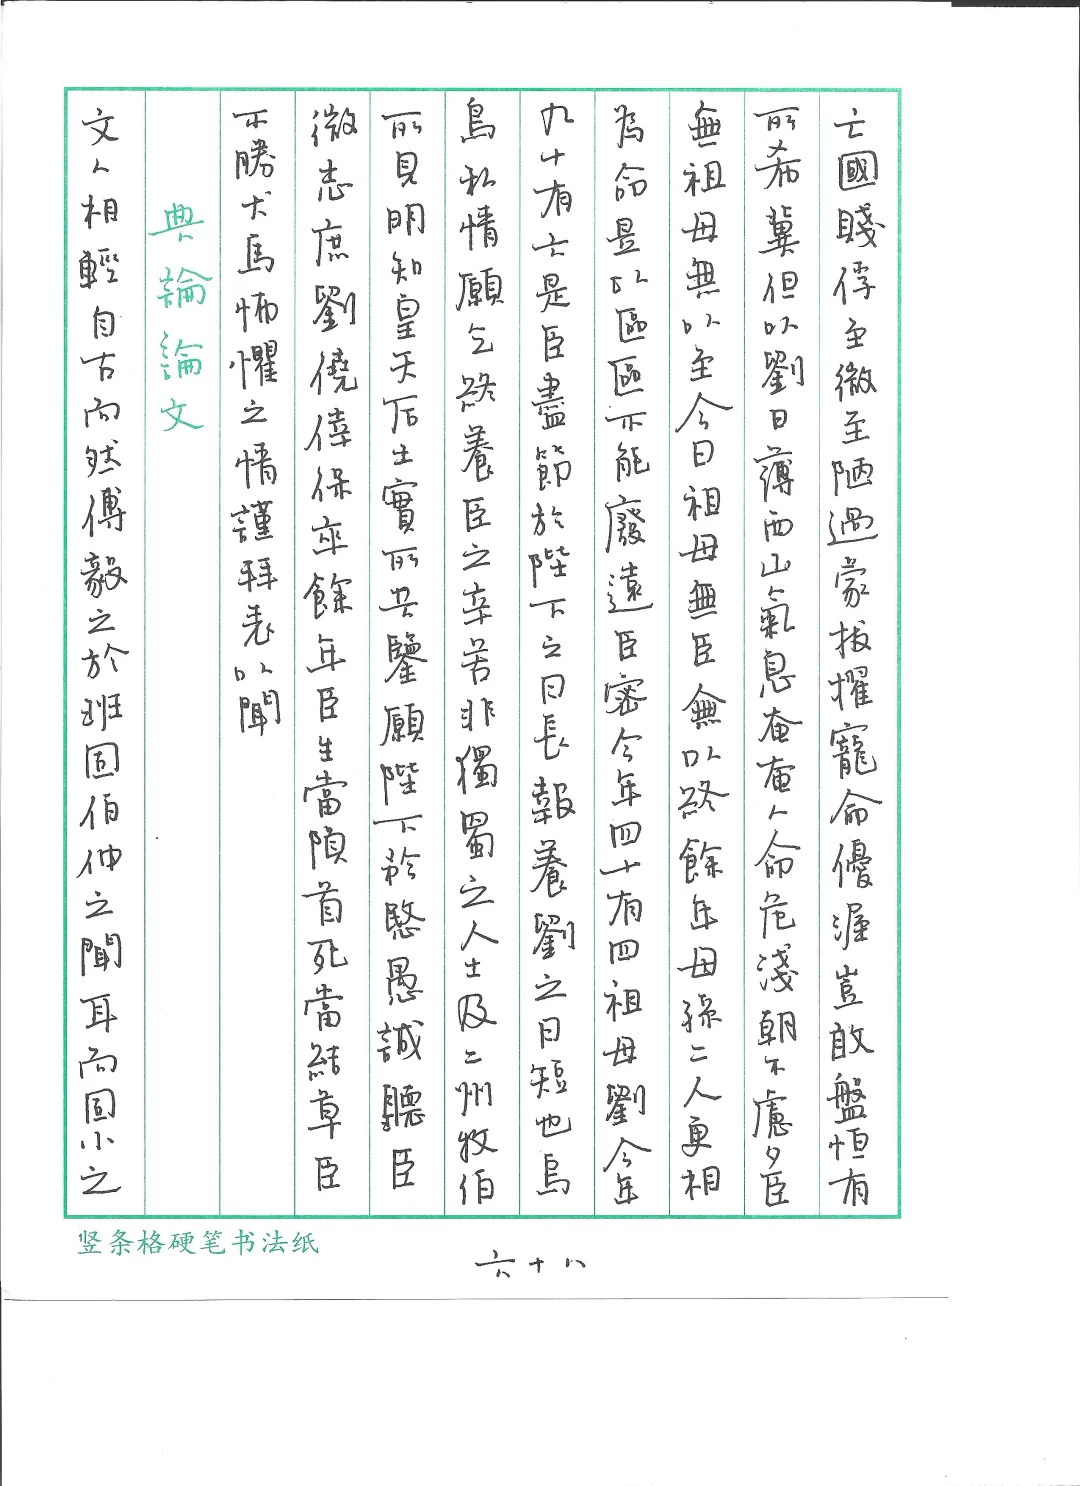 亡國賤俘至微至陋過蒙拔擢寵命優渥豈敢盤恒有
所希冀但以劉日薄西山氣息奄奄人命危淺朝不慮夕臣
無祖母無以至今日祖母無臣無以終餘年母孫二人更相
為命是以區區不能廢遠臣密今年四十有四祖母劉今年
九十有六是臣盡節於陛下之日長報養劉之日短也烏
鳥私情願乞終養臣之辛苦非獨蜀之人士及二州牧伯
所見明知皇天后土實所共鑒願陛下矜愍愚誠聽臣
微志庶劉僥倖保卒餘年臣生當隕首死當結草臣
不勝犬馬怖懼之情謹拜表以聞
典論論文
文人相輕自古而然傅毅之於班固伯仲之間耳而固小之
竖条格硬笔书法纸
六十八